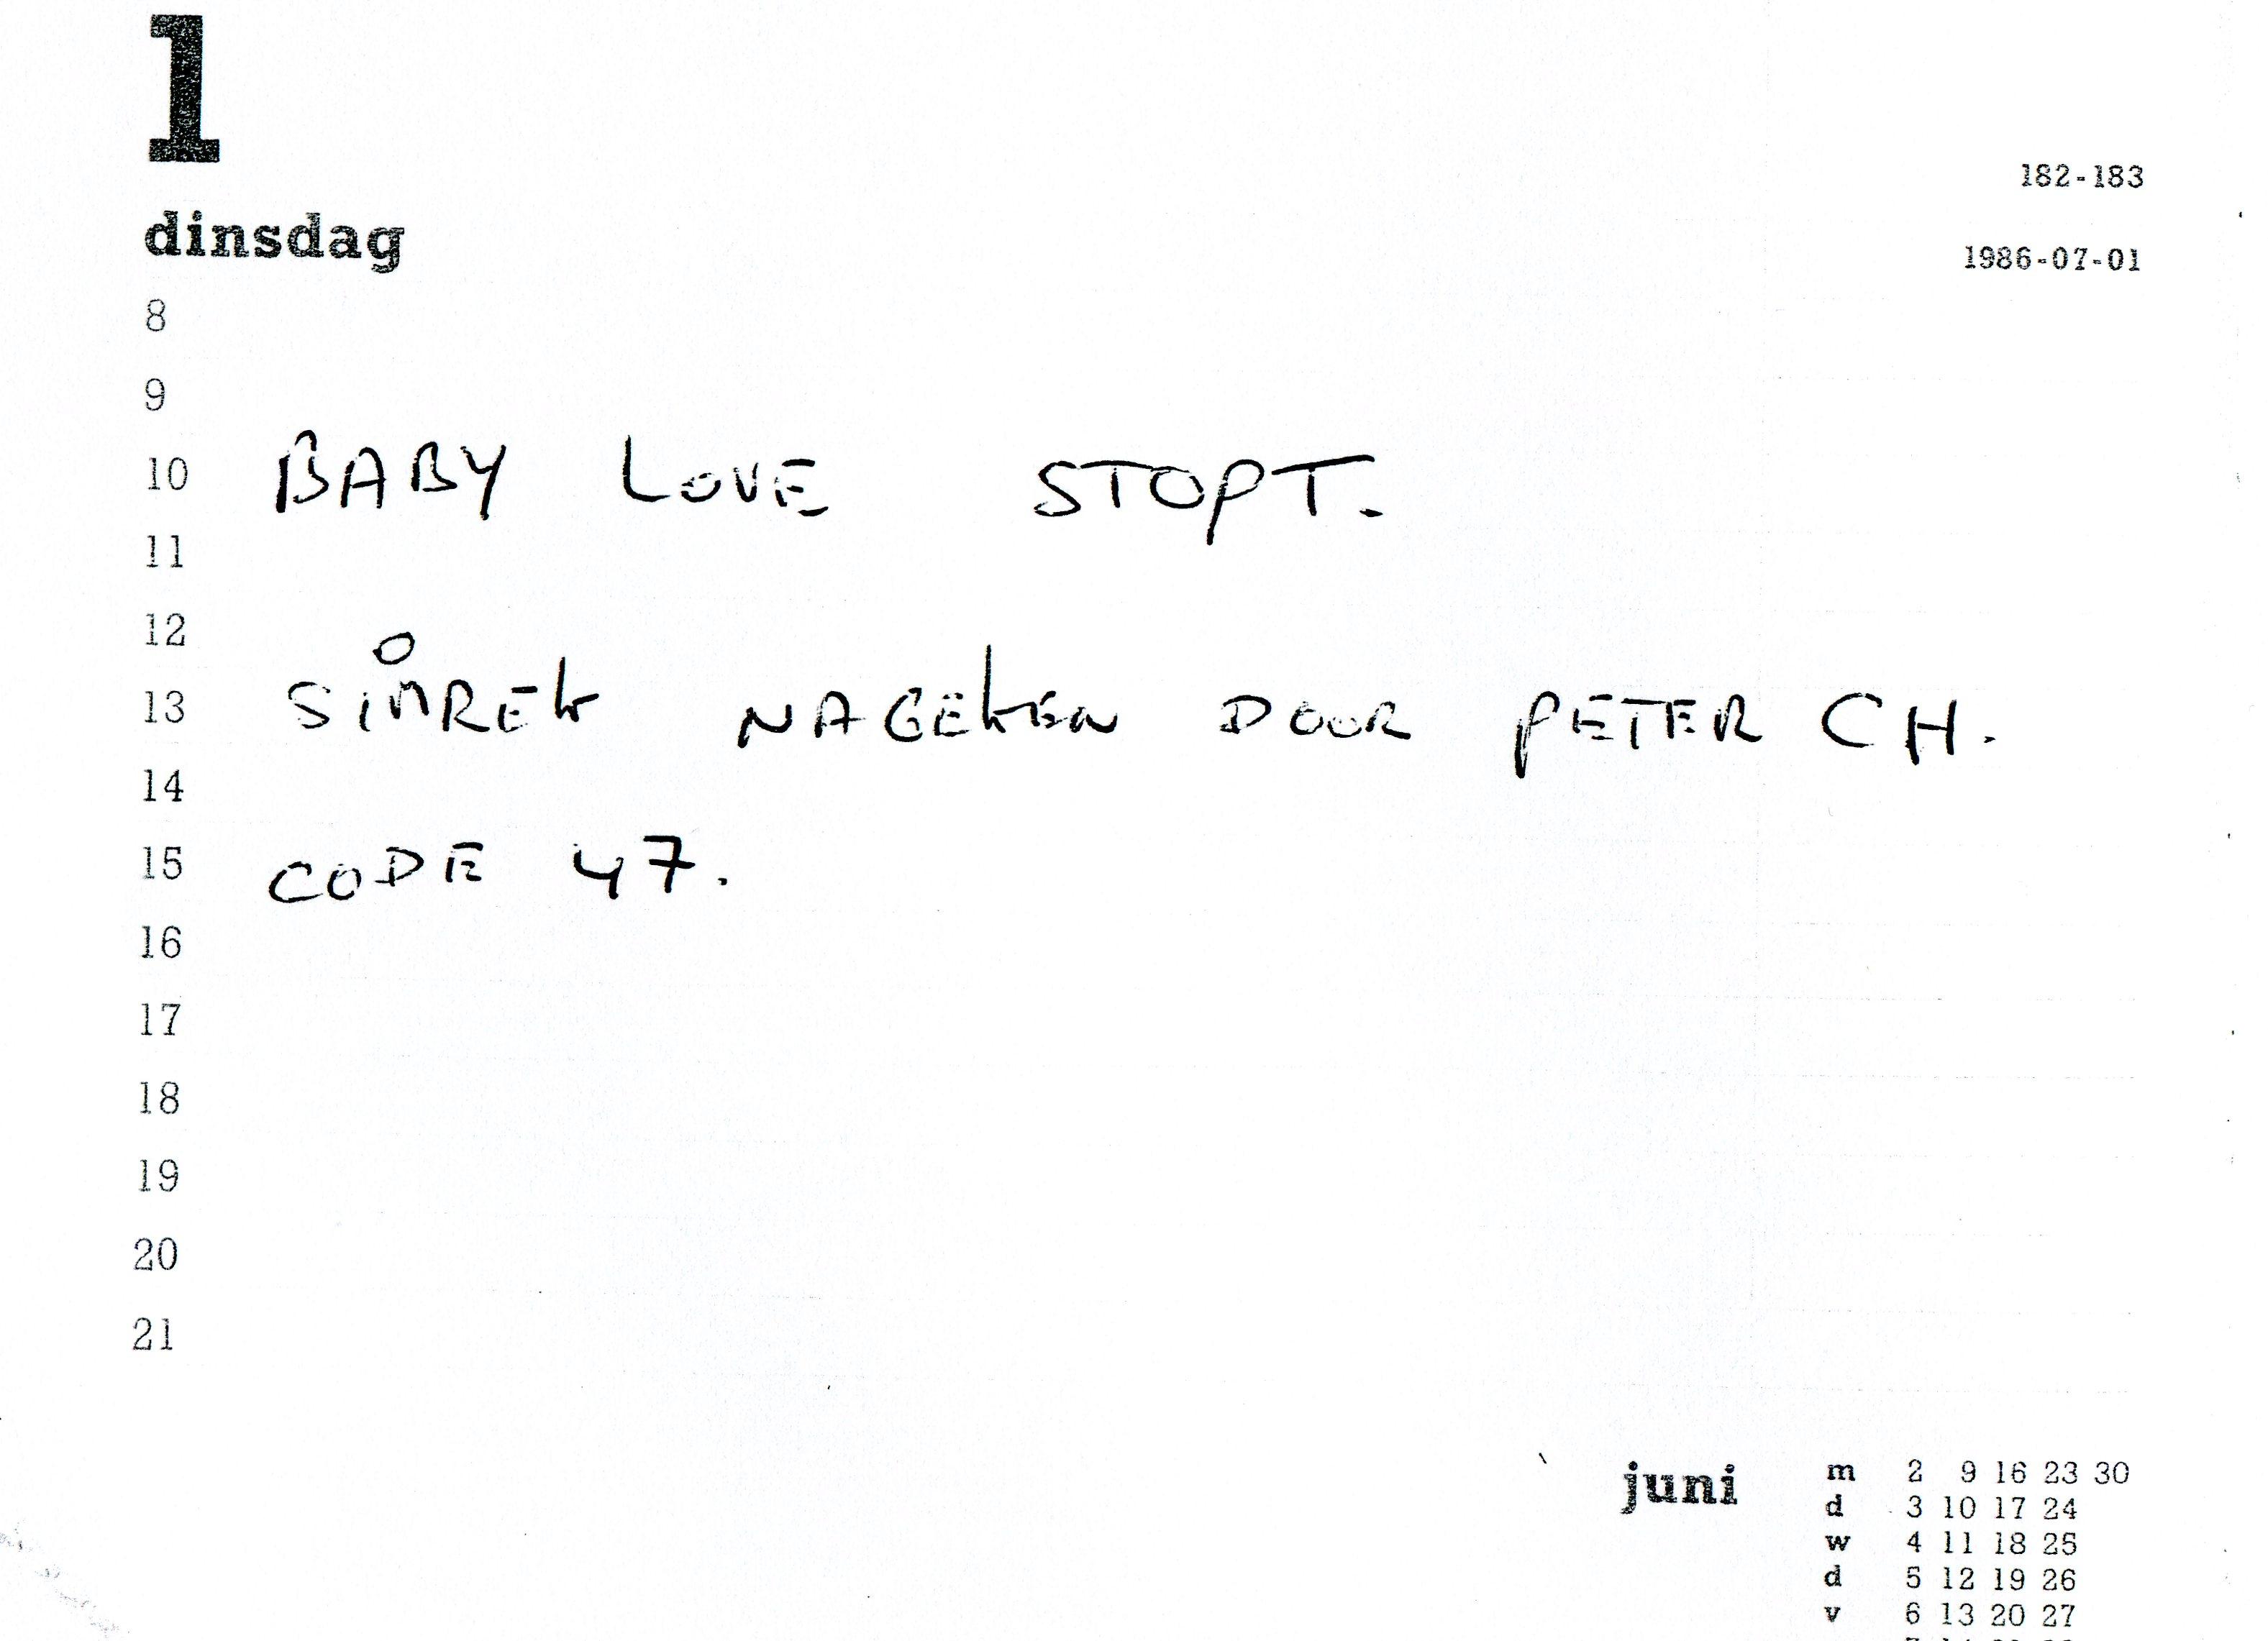 1
182-183
dinsdag
1986-07-01
8
9
10 BABY LOVE STOPT.
11
12
13 NAGEKEN DOOR PETER CH.
14
15 CODE 47.
16
17
18
19
20
21
juni
m 2 9 16 23 30
d 3 10 17 24
w 4 11 18 25
d 5 12 19 26
v 6 13 20 27